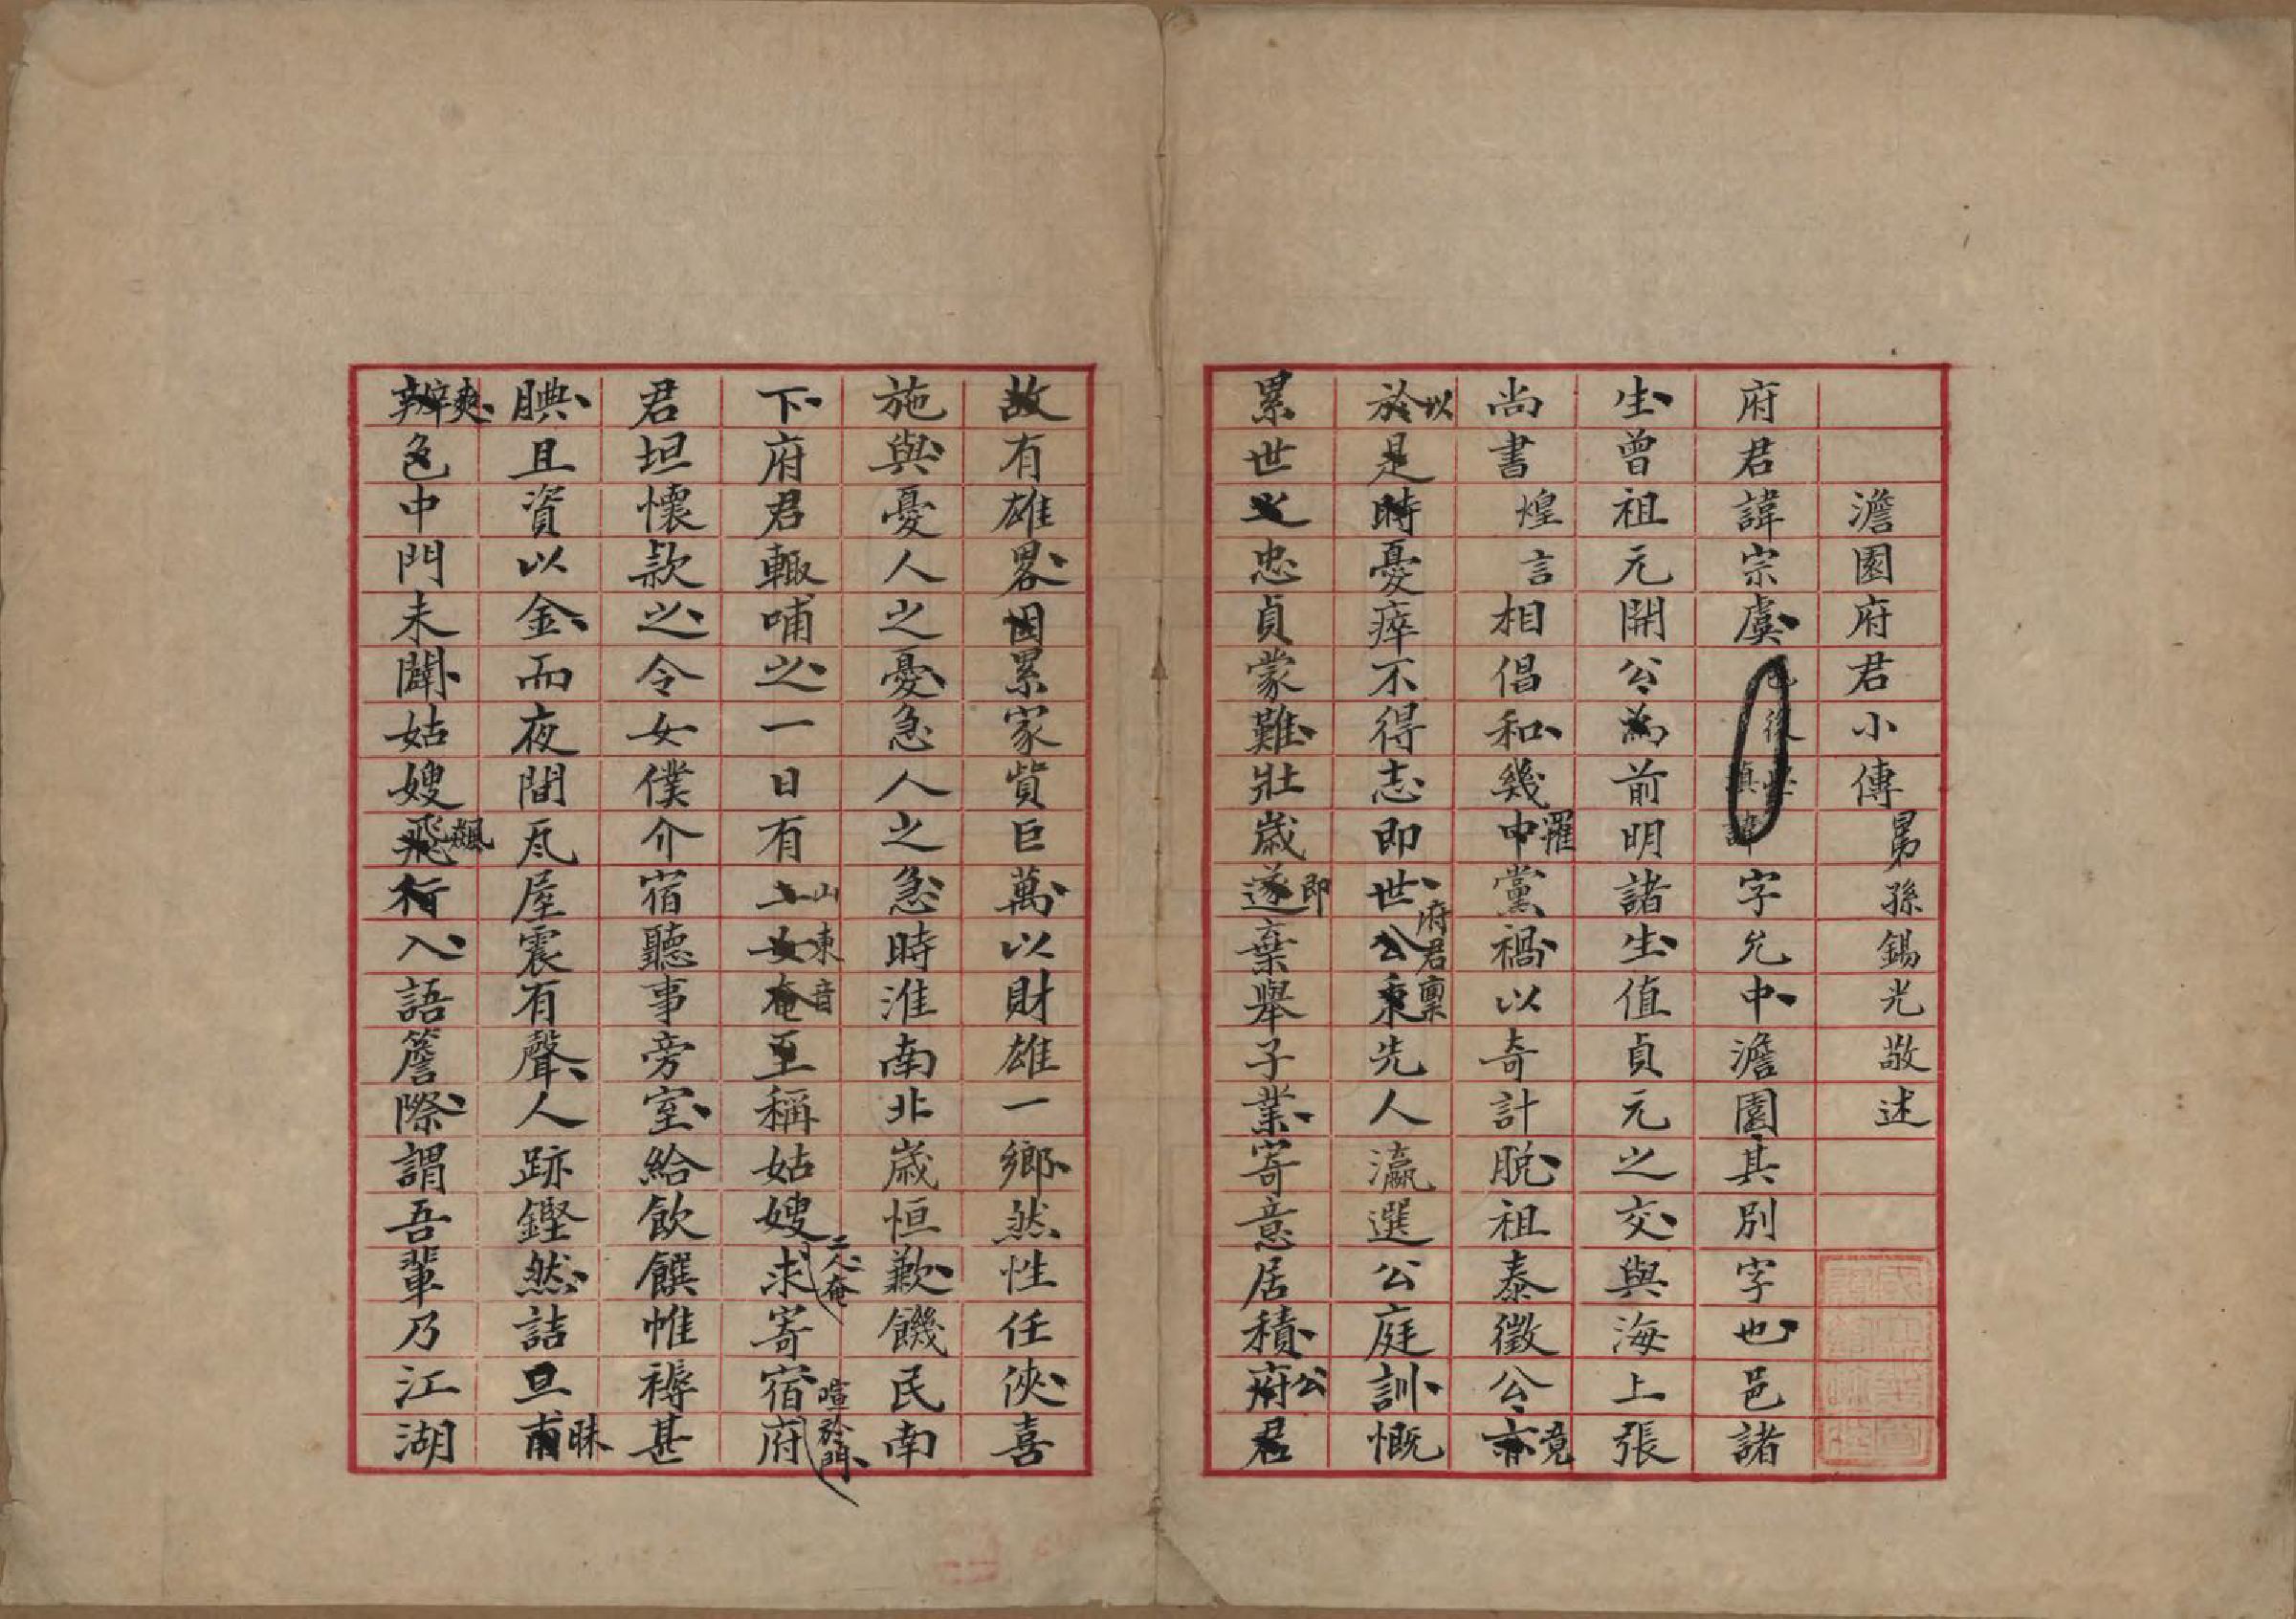 澹園府君小傳 舅孫錫光敬述
府君諱宗虞字允中澹園其別字也邑諸
生曾祖元開公為前明諸生值貞元之交與海上張
尚書煌言相倡和幾中罹黨禍以奇計脫祖泰徵公亦竟
於以是時憂瘁不得志即世公府君秉稟先人瀛選公庭訓慨
累世之忠貞蒙難壯歲遂即棄舉子業寄意居積府公君
故有雄畧因累家貲巨萬以財雄一鄉然性任俠喜
施與憂人之憂急人之急時淮南北歲恒歉饑民南
下府君輒哺之一日有二山女東奄音至稱姑嫂二人奄求寄宿喧於門府
君坦懷款之令女僕介宿聽事旁室給飲饌帷褥甚
腆且資以金而夜間瓦屋震有聲人跡鏗然詰旦甫昧
辨爽色中門未闢姑嫂飛飄行入語簷際謂吾輩乃江湖